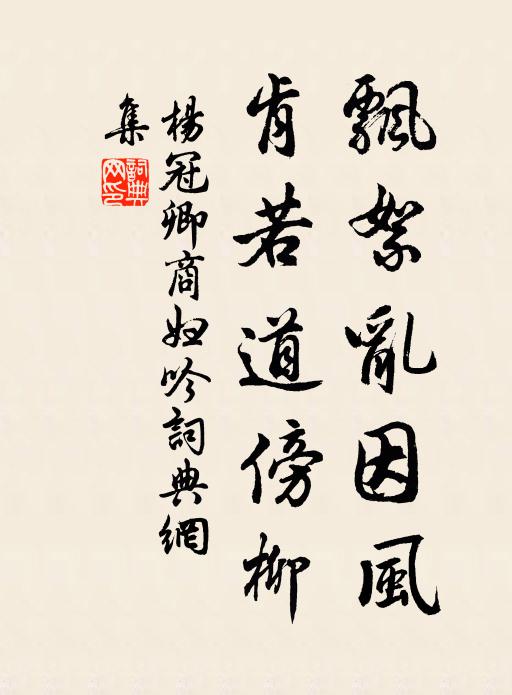 飄絮亂因風
肯若道傍柳
楊冠卿商婦吟詞典網
集
詞典
网印